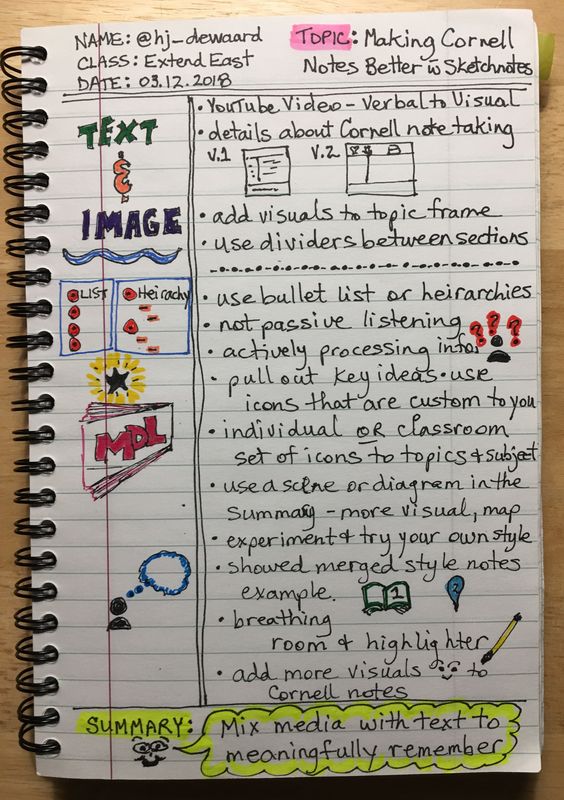 NAME: @hj_dewaard
CLASS: Extend East
DATE: 03.12.2018
TOPIC: Making Cornell
Notes Better w Sketchnotes
TEXT
&
IMAGE
LIST
Heirachy
MDL
• YouTube Video - Verbal to Visual
• details about Cornell note taking
V.1 V.2
• add visuals to topic frame
• use dividers between sections
• use bullet list or heirarchies
• not passive listening
? ? ?
• actively processing info
• pull out key ideas • use
icons that are custom to you
• individual OR classroom
set of icons to topics & subject
• use a scene or diagram in the
summary - more visual, map
• experiment & try your own style
• showed merged style notes
example. 1 ?
• breathing
room & highlighter
• add more visuals to
Cornell notes
SUMMARY:
Mix media with text to
meaningfully remember